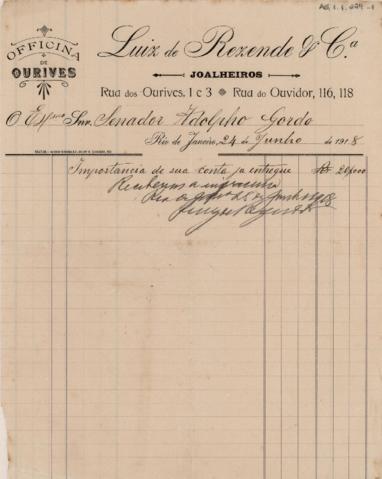 AG. 1. 1. 224 -1
OFFICINA
DE
OURIVES
Luiz de Rezende & Cª
JOALHEIROS
Rua dos Ourives, 1 e 3 Rua do Ouvidor, 116, 118
O Exmo Snr. Senador Adolpho Gordo
Rio de Janeiro, 24 de Junho de 1918
Importância de sua conta já entregue Rs 20$000
Recebemos a
Rio de Junho